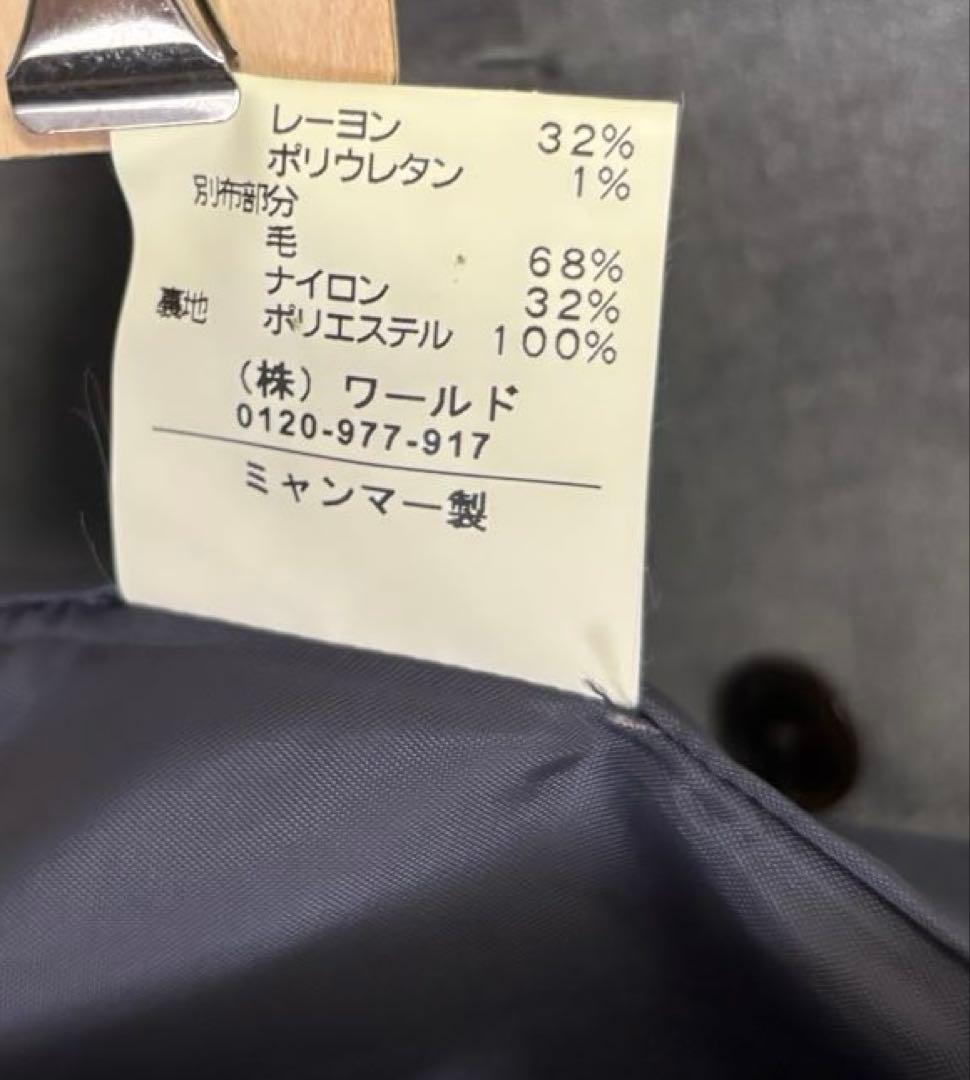 レーヨン 32%
ポリウレタン 1%
別布部分
毛 68%
ナイロン 32%
裏地 ポリエステル 100%
(株) ワールド
0120-977-917
ミャンマー製